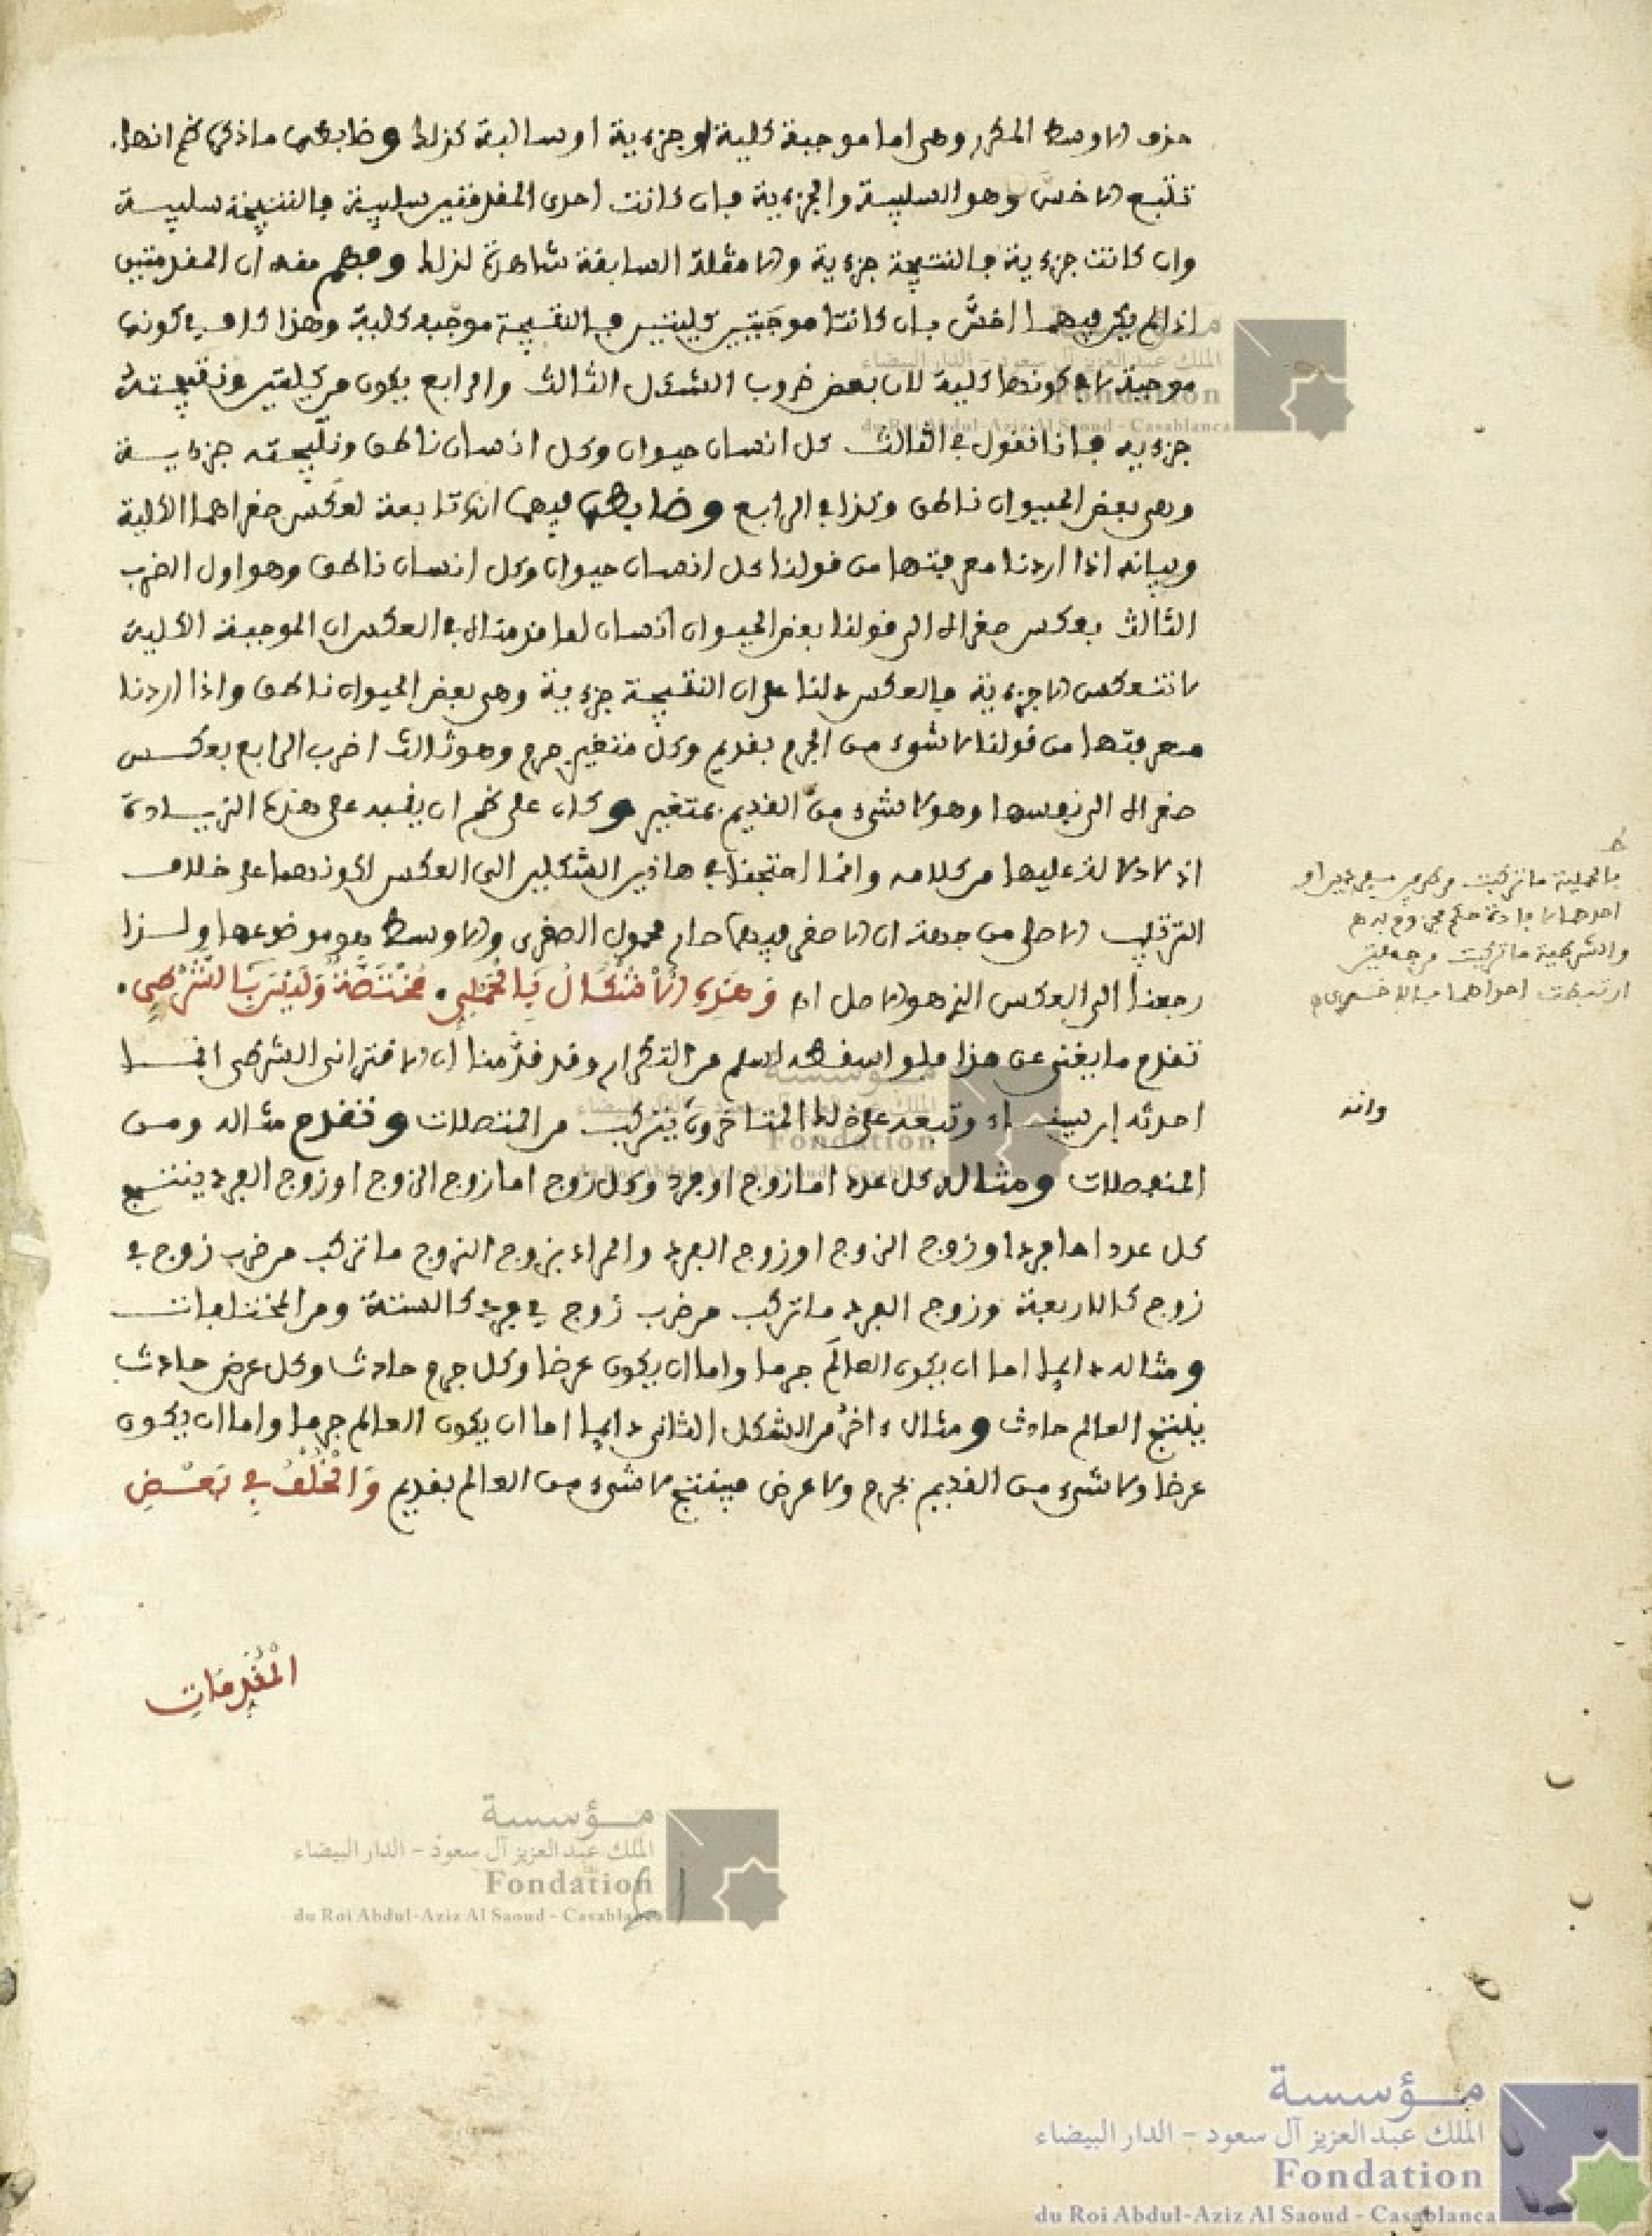 حذف الاوسط المكرر وهي اما موجبة كلية او جزءية او سالبة كذلك وضابطها ما ذكره ثم انها
تتبع الاخس وهو السلبية والجزءية فان كانت احدى المقدمتين سلبية فالنتيجة سلبية
وان كانت جزءية فالنتيجة جزءية والامثلة السابقة شاهدة لذلك وفهم منه ان المقدمتين
اذا لم يكن فيهما اخس بان كانتا موجبتين كليتين فالنتيجة موجبه كلية وهذا كاف في كونها
موجبة لا في كونها كلية لان بعض ضروب الشكل الثالث والرابع يكون من كليتين ونتيجته
جزءيه فاذا نقول في الثالث كل انسان حيوان وكل انسان ناطق ونتيجته جزءية
وهي بعض الحيوان ناطق وكذا في الرابع وضابطه فيهما انه تابعة لعكس صغراهما الكلية
وبيانه اذا اردنا معرفتها من قولنا كل انسان حيوان وكل انسان ناطق وهو اول الضرب
الثالث بعكس صغراه الى قولنا بعض الحيوان انسان لما قدمناه في العكس ان الموجبة الكلية
لا تنعكس الا جزءية فالعكس دلنا على ان النتيجة جزءية وهي بعض الحيوان ناطق واذا اردنا
معرفتها من قولنا لا شيء من الجرم بقديم وكل متغير جرم وهو ثالث اضرب الرابع بعكس
صغراه الى نفسها وهو لا شيء من القديم بمتغير وكان على ثم ان يقيد على هذه الزيادة
اذ لا دلالة عليها من كلامه وانما احتجنا في هاذين الشكلين الى العكس لكونهما على خلاف
الترتيب الاصلي من جهة ان الاصغر فيهما صار محمول الصغرى والاوسط هو موضوعها ولذا
رجعنا الى العكس الذي هو الاصل اه وَهَذِهِ الْأَشْكَالُ بِالْحَمْلِي . مُخْتَصَّةٌ وَلَيْسَ بِالشَّرْطِي .
تقدم ما يغني عن هذا فلو اسقطه لسلم من التكرار وقد قدمنا ان الاقتراني الشرطي انما
احدثه ابن سيناء وتبعه على ذلك المتاخرون يتركب من المتصلات وتقدم مثاله ومن
المنفصلات ومثاله كل عدد اما زوج او فرد وكل زوج اما زوج الزوج او زوج الفرد ينتج
كل عدد اما فرد او زوج الزوج او زوج الفرد والمراد بزوج الزوج ما تركب من ضرب زوج في
زوج كالاربعة وزوج الفرد ما تركب من ضرب زوج في فرد كالستة ومن المختلفات
ومثاله دايما اما ان يكون العالَم جرما واما ان يكون عرضا وكل جرم حادث وكل عرض حادث
ينتج العالم حادث ومثال ءاخر من الشكل الثاني دايما اما ان يكون العالم جرما واما ان يكون
عرضا ولا شيء من القديم بجرم ولا عرض فينتج لا شيء من العالم بقديم وَالْحَذْفُ فِي بَعْضِ
الْمُقَدِّمَاتِ
والشرطية ما تركبت من جملتين
وانه
مؤسسة
الملك عبد العزيز آل سعود - الدار البيضاء
Fondation
du Roi Abdul-Aziz Al Saoud - Casablanca